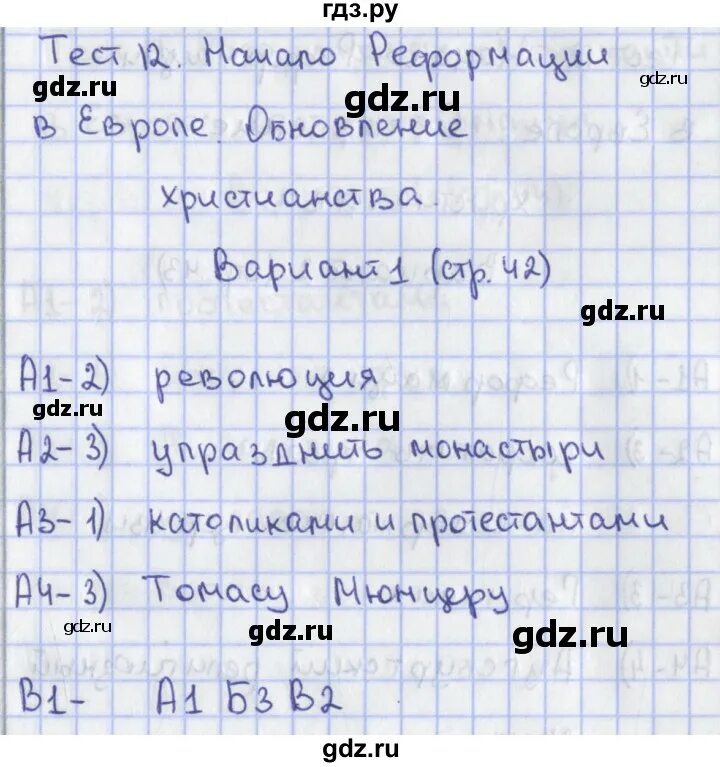 гдз.ру
Тест 12. Начало Реформации
gdz.ru
gdz.ru
gdz.ru
в Европе. Обновление
христианства
Вариант 1 (стр. 42)
gdz.ru
А1-2) революция
gdz.ru
gdz.ru
А2-3) упразднить монастыри
А3-1) католиками и протестантами
А4-3) Томасу Мюнцеру
gdz.ru
gdz.ru
gdz.ru
В1- А1 Б3 В2
gdz.ru